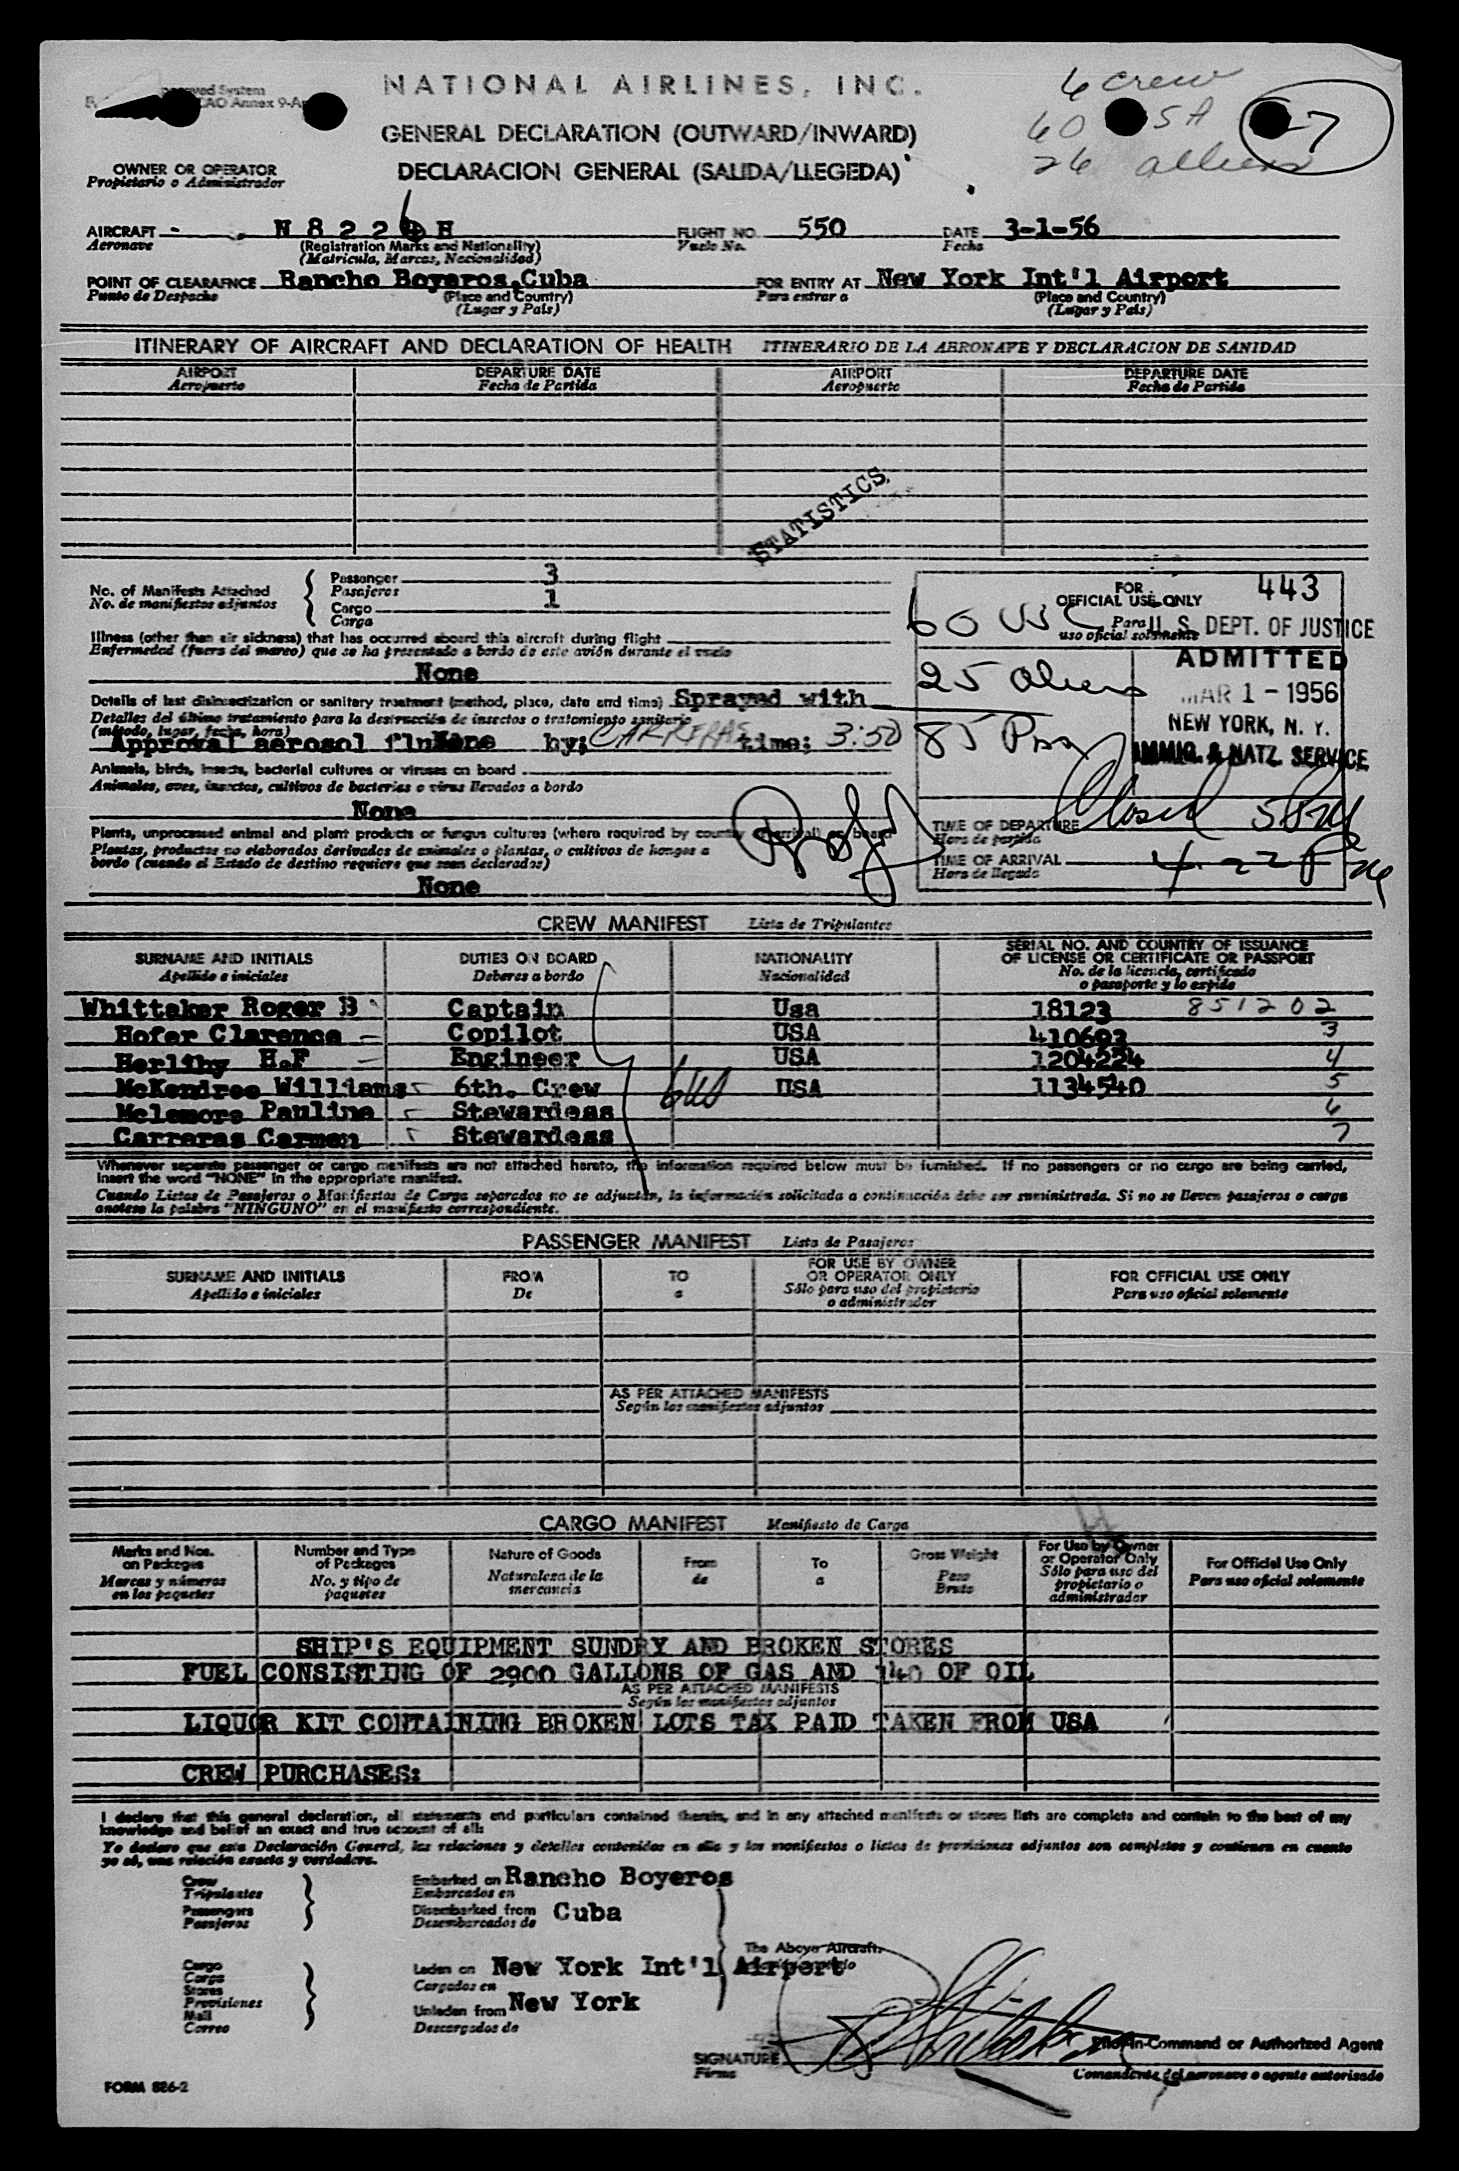 NATIONAL AIRLINES, INC.
6 crew
60 SA
7
26 aliens
GENERAL DECLARATION (OUTWARD/INWARD)
DECLARACION GENERAL (SALIDA/LLEGEDA)
OWNER OR OPERATOR
Propietario o Administrador
AIRCRAFT N 8 2 2 H FLIGHT NO. 550 DATE 3-1-56
Aeronave (Registration Marks and Nationality) Vuelo No. Fecha
(Matricula, Marcas, Nacionalidad)
POINT OF CLEARAFNCE Rancho Boyeros,Cuba FOR ENTRY AT New York Int'l Airport
Punto de Despacho (Place and Country) Para entrar a (Place and Country)
(Lugar y Pais) (Lugar y Pais)
ITINERARY OF AIRCRAFT AND DECLARATION OF HEALTH ITINERARIO DE LA AERONAVE Y DECLARACION DE SANIDAD
AIRPORT DEPARTURE DATE AIRPORT DEPARTURE DATE
Aeropuerto Fecha de Partida Aeropuerto Fecha de Partida
STATISTICS
No. of Manifests Attached Passenger 3
No. de manifiestos adjuntos Pasajeros
Cargo 1
Carga
FOR OFFICIAL USE ONLY 443
Para uso oficial solamente
60 USC
U. S. DEPT. OF JUSTICE
ADMITTED
MAR 1 - 1956
NEW YORK, N. Y.
IMMIG. & NATZ. SERVICE
25 aliens
85 Psg
Closed 5 PM
TIME OF DEPARTURE
Hora de partida
TIME OF ARRIVAL 4.22 Pm
Hora de llegada
Illness (other than air sickness) that has occurred aboard this aircraft during flight
Enfermedad (fuera del mareo) que se ha presentado a bordo de este avión durante el vuelo
None
Details of last disinsectization or sanitary treatment (method, place, date and time) Sprayed with
Detalles del último tratamiento para la destrucción de insectos o tratamiento sanitario
(método, lugar, fecha, hora)
Approval aerosol by; CARRERAS time; 3:50
Animals, birds, insects, bacterial cultures or viruses on board
Animales, aves, insectos, cultivos de bacterias o virus llevados a bordo
None
Plants, unprocessed animal and plant products or fungus cultures (where required by country of arrival) on board
Plantas, productos no elaborados derivados de animales o plantas, o cultivos de hongos a
bordo (cuando el Estado de destino requiere que sean declarados)
None
CREW MANIFEST Lista de Tripulantes
SURNAME AND INITIALS DUTIES ON BOARD NATIONALITY SERIAL NO. AND COUNTRY OF ISSUANCE
OF LICENSE OR CERTIFICATE OR PASSPORT
Apellido e iniciales Deberes a bordo Nacionalidad No. de la licencia, certificado
o pasaporte y lo expide
Whittaker Roger B Captain Usa 18123 851202
Hofer Clarence Copilot USA 410603 3
Herlihy H.F Engineer USA 1204224 4
McKendree Williams 6th. Crew USA 1134540 5
Mclemore Pauline Stewardess 6
Carreras Carmen Stewardess 7
Whenever separate passenger or cargo manifests are not attached hereto, the information required below must be furnished. If no passengers or no cargo are being carried,
insert the word "NONE" in the appropriate manifest.
Cuando Listas de Pasajeros o Manifiestos de Carga separados no se adjuntan, la información solicitada a continuación debe ser suministrada. Si no se lleven pasajeros o carga
anotese la palabra "NINGUNO" en el manifiesto correspondiente.
PASSENGER MANIFEST Lista de Pasajeros
SURNAME AND INITIALS FROM TO FOR USE BY OWNER OR OPERATOR ONLY FOR OFFICIAL USE ONLY
Apellido e iniciales De a Sólo para uso del propietario o administrador Para uso oficial solamente
AS PER ATTACHED MANIFESTS
Según los manifiestos adjuntos
CARGO MANIFEST Manifiesto de Carga
Marks and Nos. on Packages Number and Type of Packages Nature of Goods From To Gross Weight For Use by Owner or Operator Only For Official Use Only
Marcas y números en los paquetes No. y tipo de paquetes Naturaleza de la mercancia de a Peso Bruto Sólo para uso del propietario o administrador Para uso oficial solamente
SHIP'S EQUIPMENT SUNDRY AND BROKEN STORES
FUEL CONSISTING OF 2900 GALLONS OF GAS AND 140 OF OIL
AS PER ATTACHED MANIFESTS
Según los manifiestos adjuntos
LIQUOR KIT CONTAINING BROKEN LOTS TAX PAID TAKEN FROM USA
CREW PURCHASES:
I declare that this general declaration, all statements and particulars contained therein, and in any attached manifests or stores lists are complete and contain to the best of my
knowledge and belief an exact and true account of all:
Yo declaro que esta Declaración General, las relaciones y detalles contenidos en ella y los manifiestos o listas de provisiones adjuntos son completos y contienen en cuanto
yo sé, una relación exacta y verdadera.
Crew Embarked on Rancho Boyeros
Tripulantes Embarcados en
Passengers Disembarked from Cuba
Pasajeros Desembarcados de
The Above Aircraft
Cargo Laden on New York Int'l Airport
Carga Cargados en
Stores
Provisiones Unladen from New York
Mail
Correo Descargados de
Pilot-in-Command or Authorized Agent
SIGNATURE
Firma Comandante del aeronave o agente autorizado
FORM 826-2